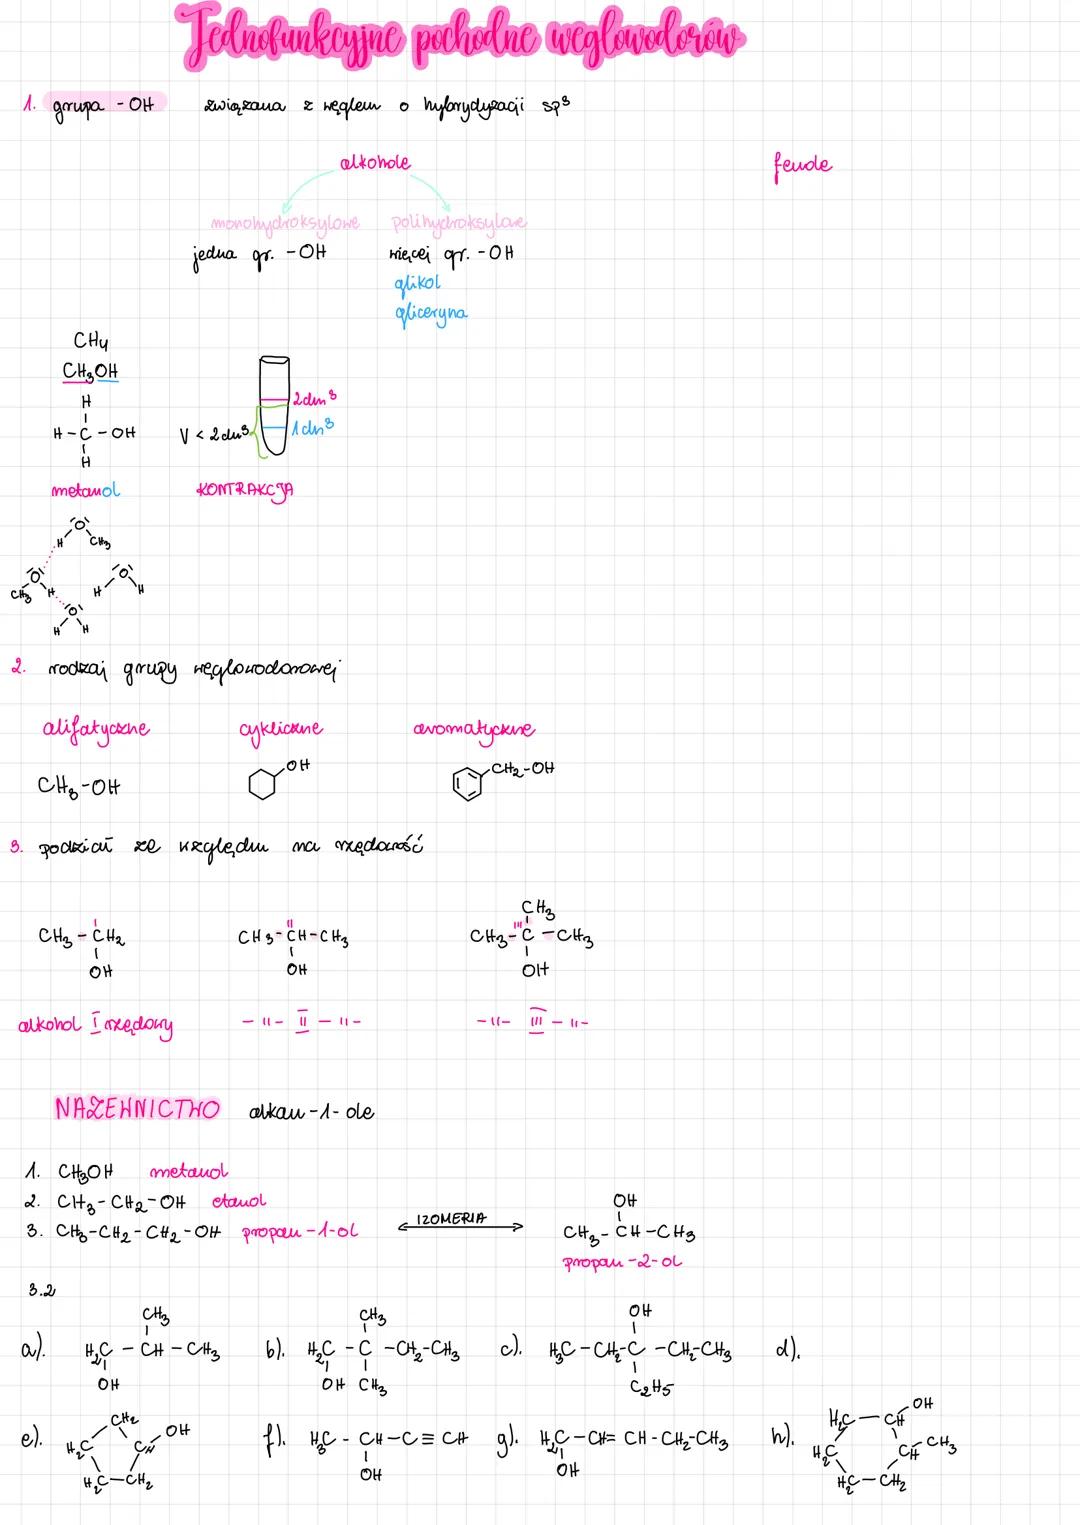 Jednofunkcyjne pochodne węglowodorów
1. grupa - OH związana z węglem o hybrydyzacji sp³
alkohole
fenole
monohydroksylowe polihydroksylowe
jedna gr. - OH więcej gr. - OH
glikol
gliceryna
CH₄
CH₃OH
H
H - C - OH
H
2dm³
1dm³
V < 2dm³
metanol
KONTRAKCJA
O
H CH₃
O
CH₃ H
O
H H
O
H H
2. rodzaj grupy węglowodorowej
alifatyczne cykliczne aromatyczne
CH₃-OH
OH
CH₂-OH
3. podział ze względu na rzędowość
CH₃ - CH₂
OH
CH₃ - CH - CH₃
OH
CH₃
CH₃ - C - CH₃
OH
alkohol I rzędowy -"- II -"- -"- III -"-
NAZEWNICTWO alkan -1- ole
1. CH₃OH metanol
2. CH₃ - CH₂ - OH etanol
3. CH₃-CH₂-CH₂-OH propan-1-ol
IZOMERIA
OH
CH₃ - CH - CH₃
propan-2-ol
3.2
a). CH₃
H₂C - CH - CH₃
OH
b). CH₃
H₂C - C - CH₂-CH₃
OH CH₃
c). OH
H₃C - CH₂-C - CH₂-CH₃
C₂H₅
d).
e). CH₂
H₂C CH OH
H₂C-CH₂
f). H₃C - CH-C≡CH
OH
g). H₂C - CH = CH - CH₂-CH₃
OH
h). H₂C - CH OH
H₂C CH CH₃
H₂C - CH₂